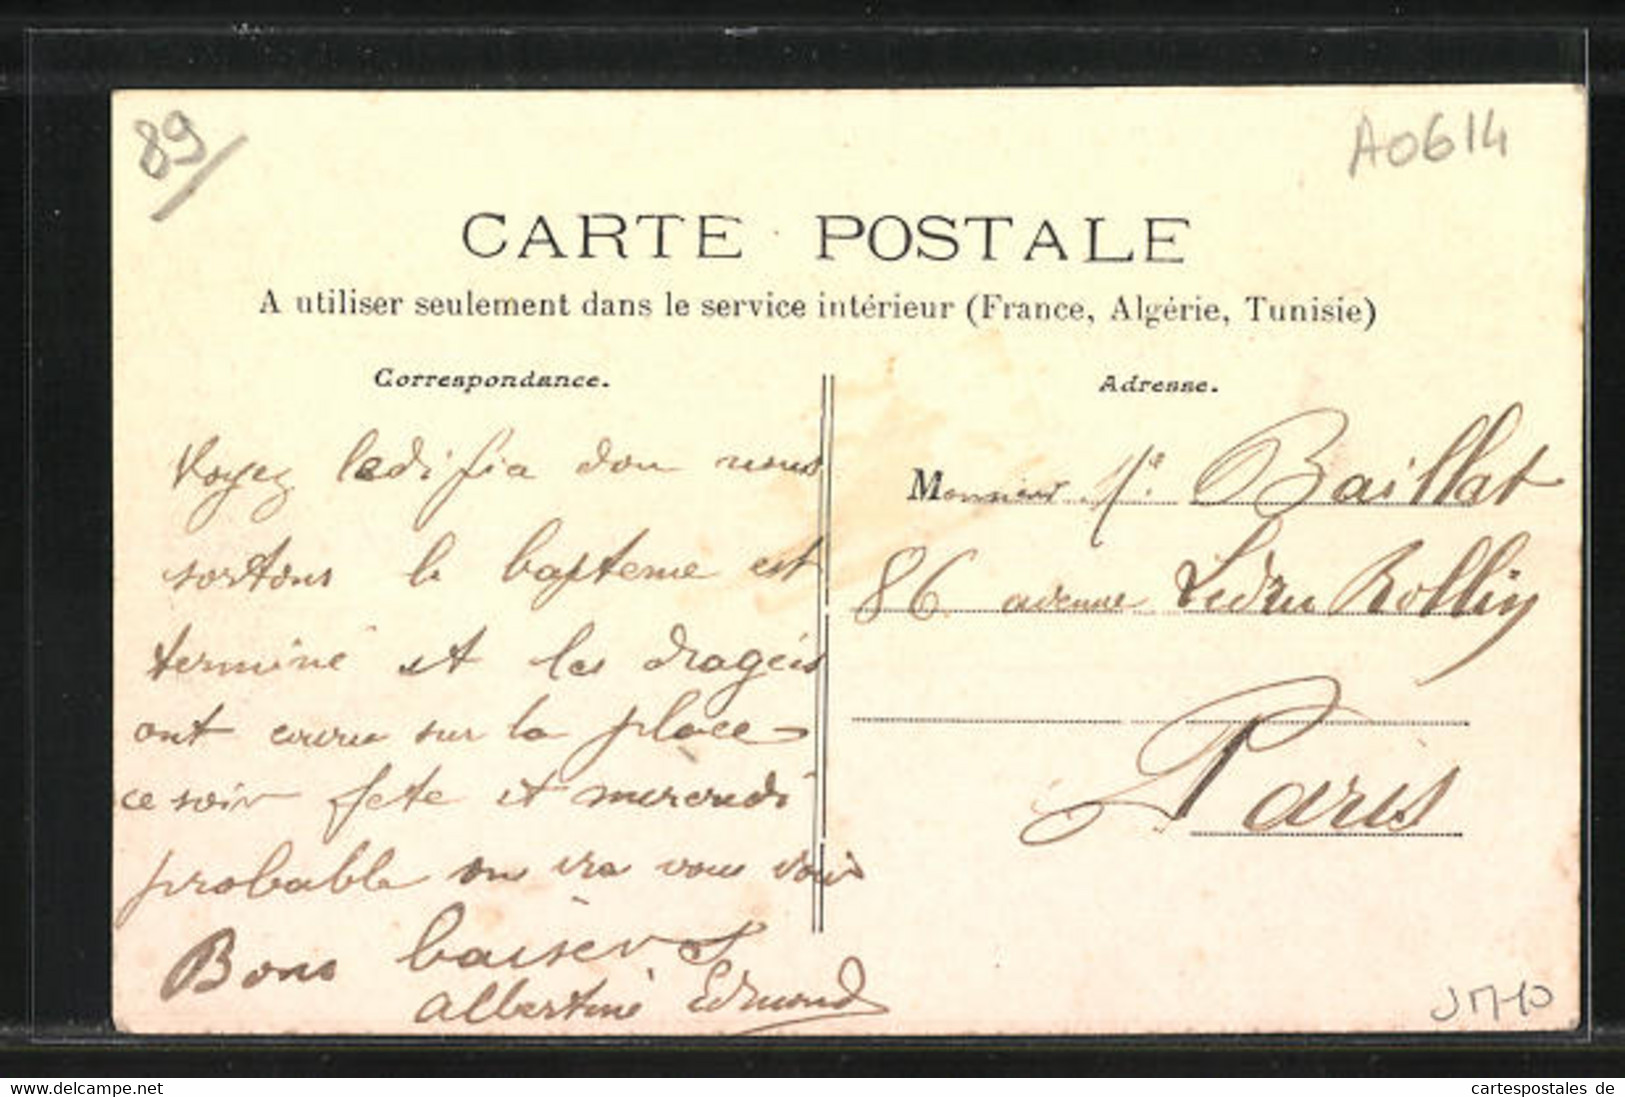 89/
A0614
CARTE POSTALE
A utiliser seulement dans le service intérieur (France, Algérie, Tunisie)
Correspondance.
Voyez ledifia don nous
sortons le bapteme est
terminé et les dragéis
ont couru sur la place
ce soir fete et mercredi
probable on ira vous voir
Bons baisers
Albertine Edmond
Adresse.
Monsieur Baillat
86 avenue Ledru Rollin
Paris
Delcampe.net
cartespostales de